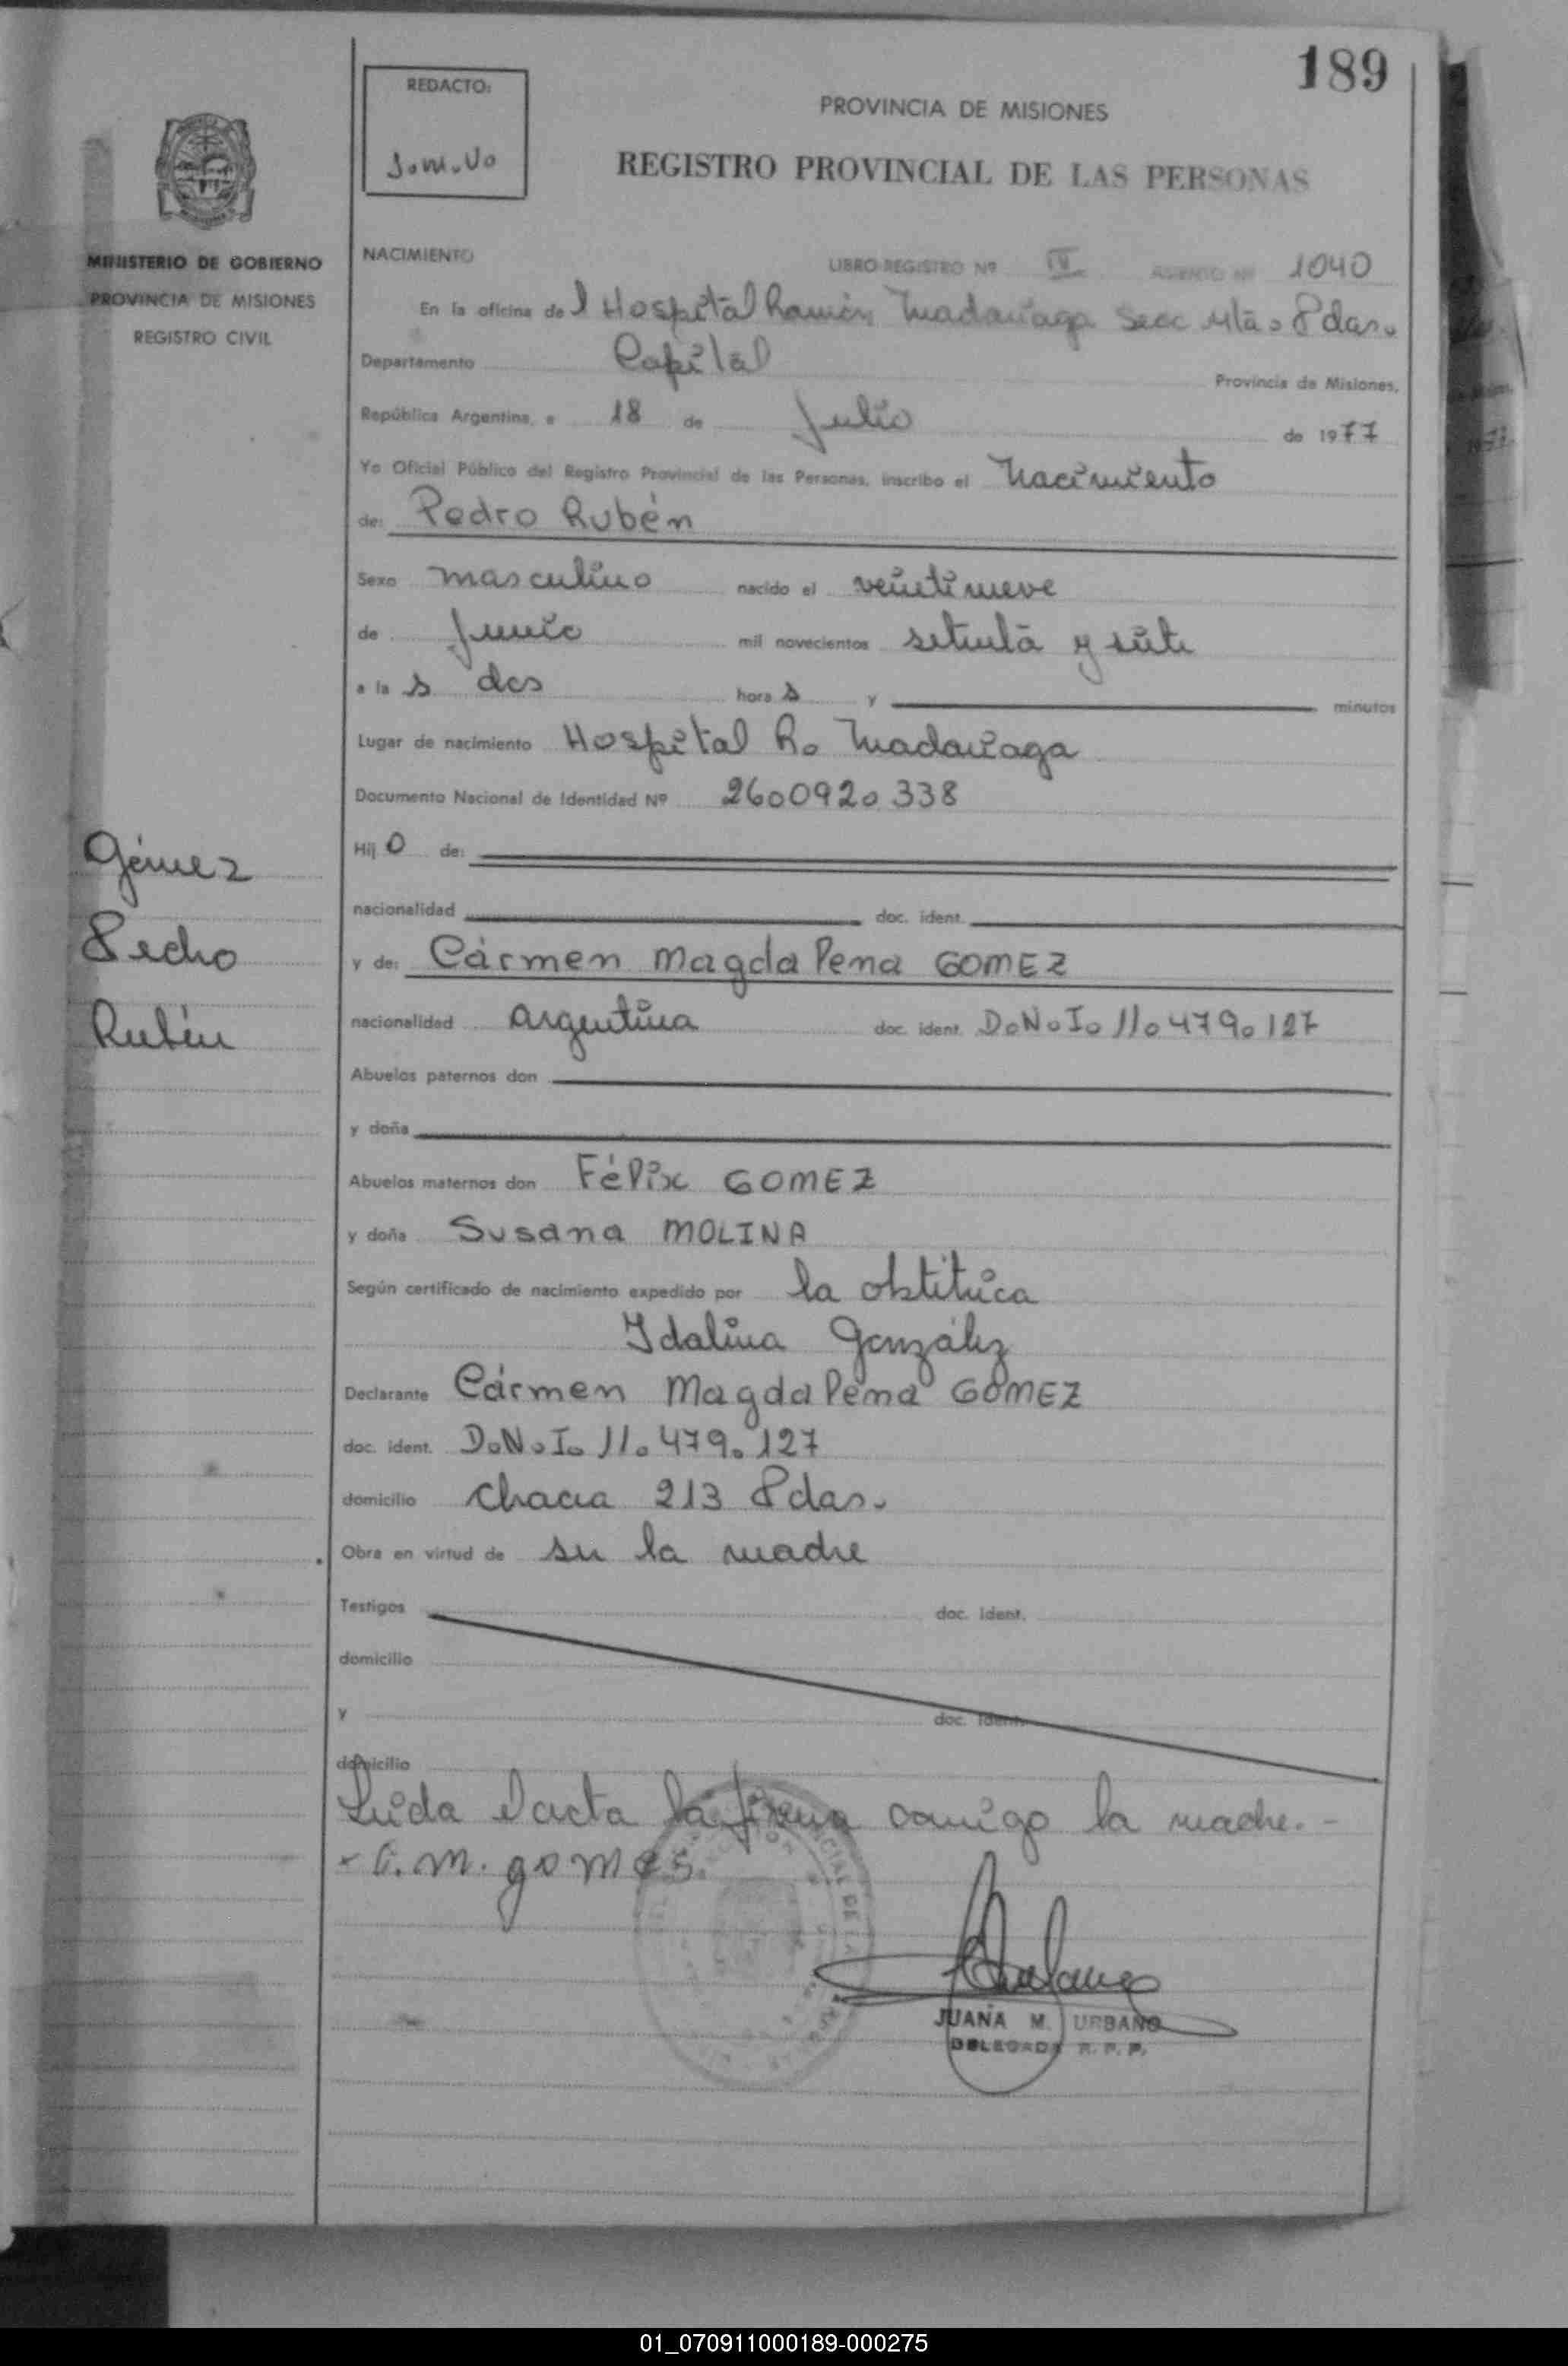 189
REDACTO:
J.M.Uo
PROVINCIA DE MISIONES
REGISTRO PROVINCIAL DE LAS PERSONAS
MINISTERIO DE GOBIERNO
PROVINCIA DE MISIONES
REGISTRO CIVIL
NACIMIENTO LIBRO REGISTRO Nº IV ASIENTO Nº 1040
En la oficina del Hospital Ramón Madariaga Secc 4ta. Pdas.
Departamento Capital Provincia de Misiones,
República Argentina, a 18 de Julio de 1977
Yo Oficial Público del Registro Provincial de las Personas, inscribo el Nacimiento
de: Pedro Rubén
Sexo masculino nacido el veintinueve
de Junio mil novecientos setenta y siete
a las dos horas y minutos
Lugar de nacimiento Hospital R. Madariaga
Documento Nacional de Identidad Nº 26.092.338
Hijo de:
nacionalidad doc. ident.
y de: Cármen Magdalena GOMEZ
nacionalidad argentina doc. ident. D.N.I. 11.479.127
Abuelos paternos don
y doña
Abuelos maternos don Félix GOMEZ
y doña Susana MOLINA
Según certificado de nacimiento expedido por la obtétrica
Idalina González
Declarante Cármen Magdalena GOMEZ
doc. ident. D.N.I. 11.479.127
domicilio Chacra 213 Pdas.
Obra en virtud de ser la madre
Testigos doc. ident.
domicilio
y doc. ident.
domicilio
Leída el acta la firma conmigo la madre.-
C.M. gomes.
JUANA M. URBANO
DELEGADA R. P. P.
Gómez
Pedro
Rubén
01_070911000189-000275